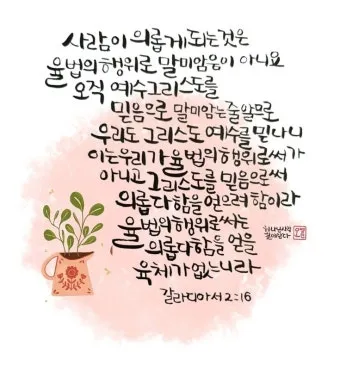 사람이 의롭게 되는것은
율법의 행위로 말미암음이 아니요
오직 예수그리스도를
믿음으로 말미암는줄알므로
우리도 그리스도 예수를 믿나니
이는우리가 율법의행위로써가
아니고 그리스도를 믿음으로써
의롭다함을 얻으려 함이라
율법의행위로써는
의롭다함을 얻을
육체가 없느니라
갈라디아서 2:16
하나님사랑